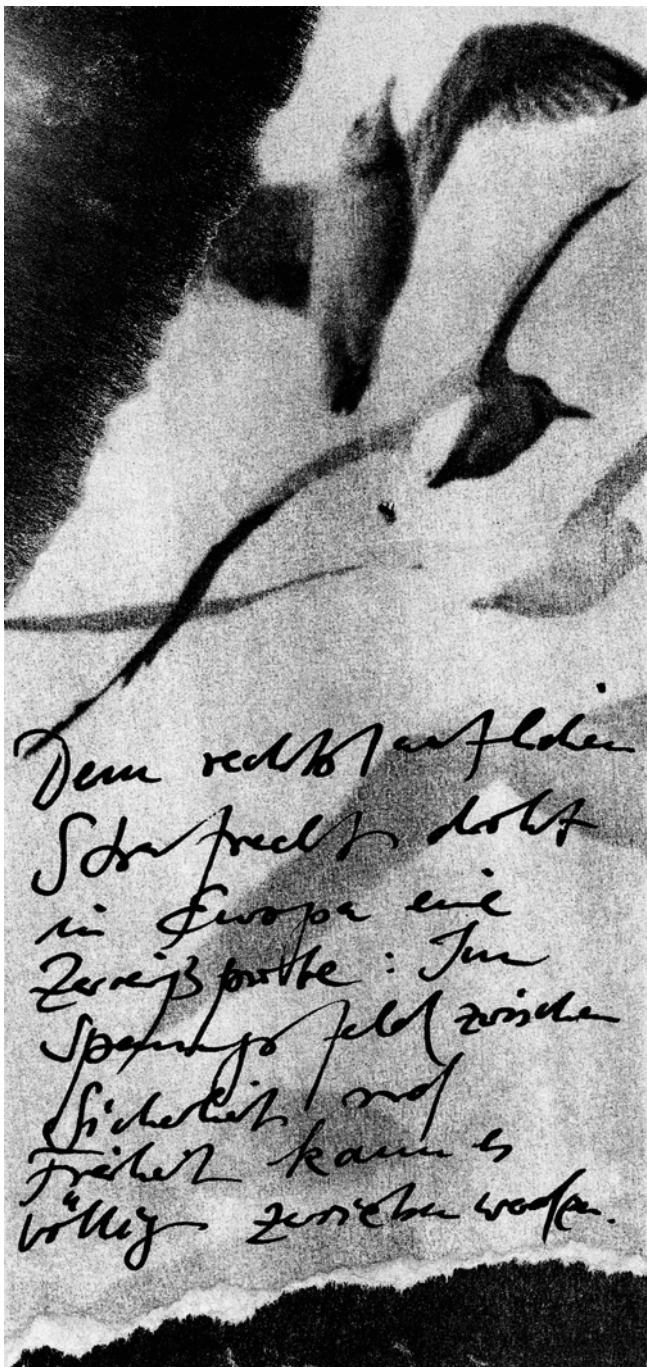 Dem rechtsstaatlichen
Strafrecht droht
in Europa eine
Zerreißprobe: Im
Spannungsfeld zwischen
Sicherheit und
Freiheit kann es
völlig zerrieben werden.